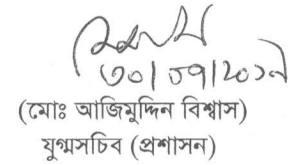 ৩০|০৭|২০১৭
(মোঃ আজিমুদ্দিন বিশ্বাস)
যুগ্মসচিব (প্রশাসন)